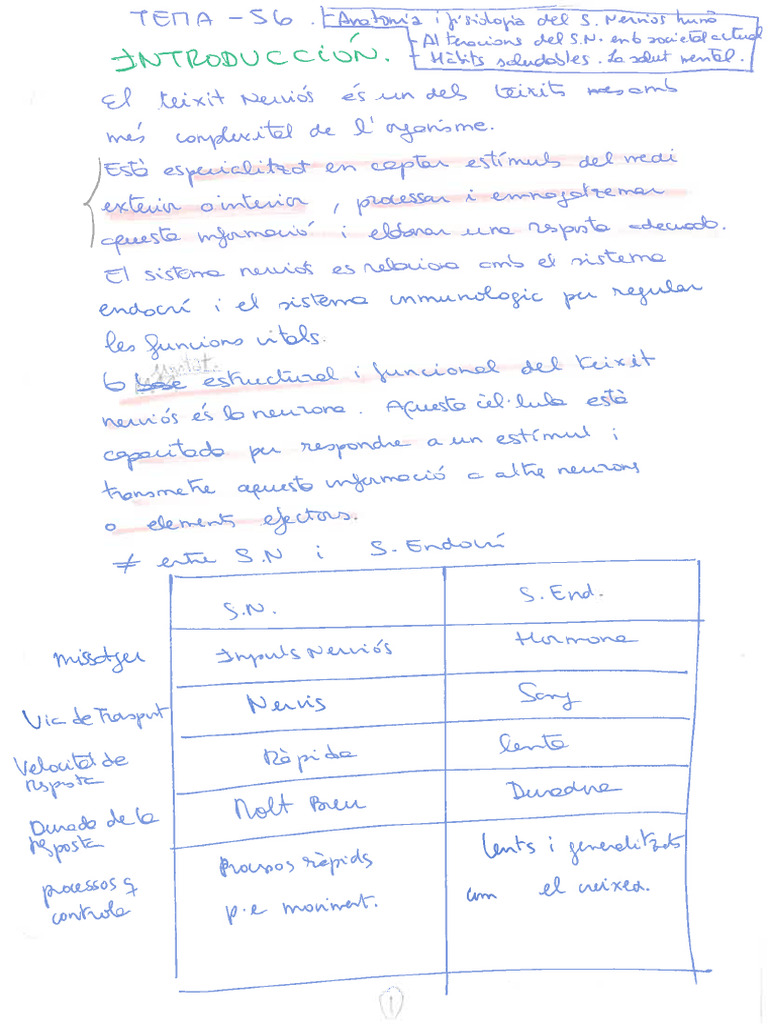 TEMA - 56. - Anatomia i fisiologia del S. Nerviós humà
- Alteracions del S.N. enb societat actual
- Hàbits saludables. La salut mental.
INTRODUCCIÓN.
El teixit Nerviós és un dels teixits mes amb
més complexitat de l'organisme.
Està especialitzat en captar estímuls del medi
exterior o interior, processar i emmagatzemar
aquesta informació i elaborar una resposta adecuada.
El sistema nerviós es relaciona amb el sistema
endocrí i el sistema inmunologic per regular
les funcions vitals.
Unitat.
Lo base estructural i funcional del teixit
nerviós és la neurona. Aquesta cèl·lula està
capacitada per respondre a un estímul i
transmetre aquesta informació a altre neurons
o elements efectors.
≠ entre S.N i S. Endocrí
S.N. S. End.
Missatger Impuls Nerviós Hormona
Via de Trasport Nervis Sang
Velocitat de
resposta Ràpida lenta
Durada de la
resposta Molt Breu Duradura
processos q
controla Processos ràpids
p.e moviment. lents i generalitzats
com el creixea.
1